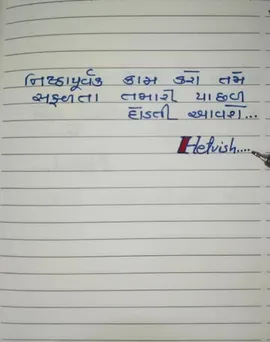 નિષ્ઠાપૂર્વક કામ કરો તમે
સફળતા તમારી પાછળ
દોડતી આવશે...
Hetvish....